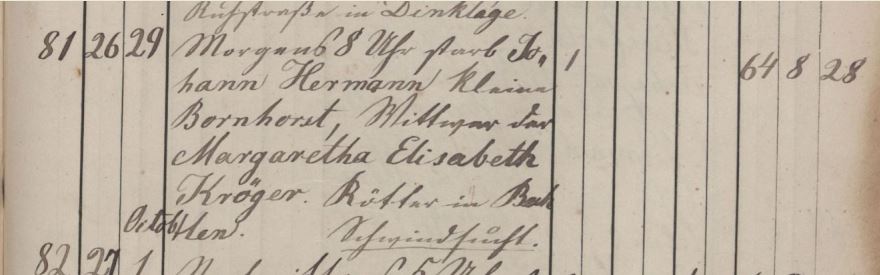 Ruhstraße in Dinklage.
81 26 29 Morgens 8 Uhr starb Jo, 1 64 8 28
hann Hermann kleine
Bornhorst, Wittwer der
Margaretha Elisabeth
Kröger. Kötter in Bah
Octob len. Schwindsucht.
82 27 1